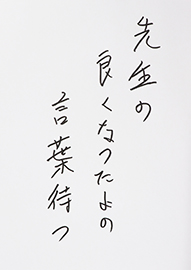 先生の
良くなったよの
言葉待つ